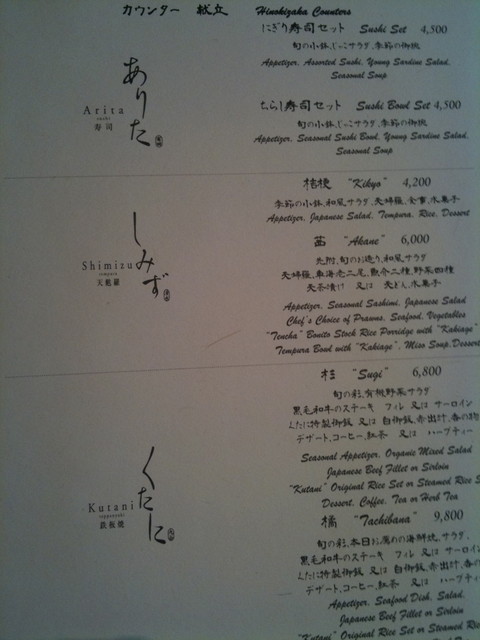 カウンター 献立 Hinokizaka Counters
ありた
Arita
sushi
寿司
にぎり寿司セット Sushi Set 4,500
旬の小鉢、じゃこサラダ、季節の御椀
Appetizer, Assorted Sushi, Young Sardine Salad,
Seasonal Soup
ちらし寿司セット Sushi Bowl Set 4,500
旬の小鉢、じゃこサラダ、季節の御椀
Appetizer, Seasonal Sushi Bowl, Young Sardine Salad,
Seasonal Soup
しみず
Shimizu
tempura
天麩羅
桔梗 "Kikyo" 4,200
季節の小鉢、和風サラダ、天婦羅、食事、水菓子
Appetizer, Japanese Salad, Tempura, Rice, Dessert
茜 "Akane" 6,000
先附、旬のお造り、和風サラダ
天婦羅、車海老二尾、魚介二種、野菜四種
天茶漬け 又は 天どん、水菓子
Appetizer, Seasonal Sashimi, Japanese Salad
Chef's Choice of Prawns, Seafood, Vegetables
"Tencha" Bonito Stock Rice Porridge with "Kakiage"
Tempura Bowl with "Kakiage", Miso Soup, Dessert
くたに
Kutani
teppanyaki
鉄板焼
杉 "Sugi" 6,800
旬の彩、有機野菜サラダ
黒毛和牛のステーキ フィレ 又は サーロイン
くたに特製御飯 又は 白御飯、赤出汁、香の物
デザート、コーヒー、紅茶 又は ハーブティー
Seasonal Appetizer, Organic Mixed Salad
Japanese Beef Fillet or Sirloin
"Kutani" Original Rice Set or Steamed Rice S
Dessert, Coffee, Tea or Herb Tea
橘 "Tachibana" 9,800
旬の彩、本日お薦めの海鮮焼、サラダ、
黒毛和牛のステーキ フィレ 又は サーロイン
くたに特製御飯 又は 白御飯、赤出汁、香の
デザート、コーヒー、紅茶 又は ハーブティ
Appetizer, Seafood Dish, Salad,
Japanese Beef Fillet or Sirloin
"Kutani" Original Rice Set or Steamed Rice